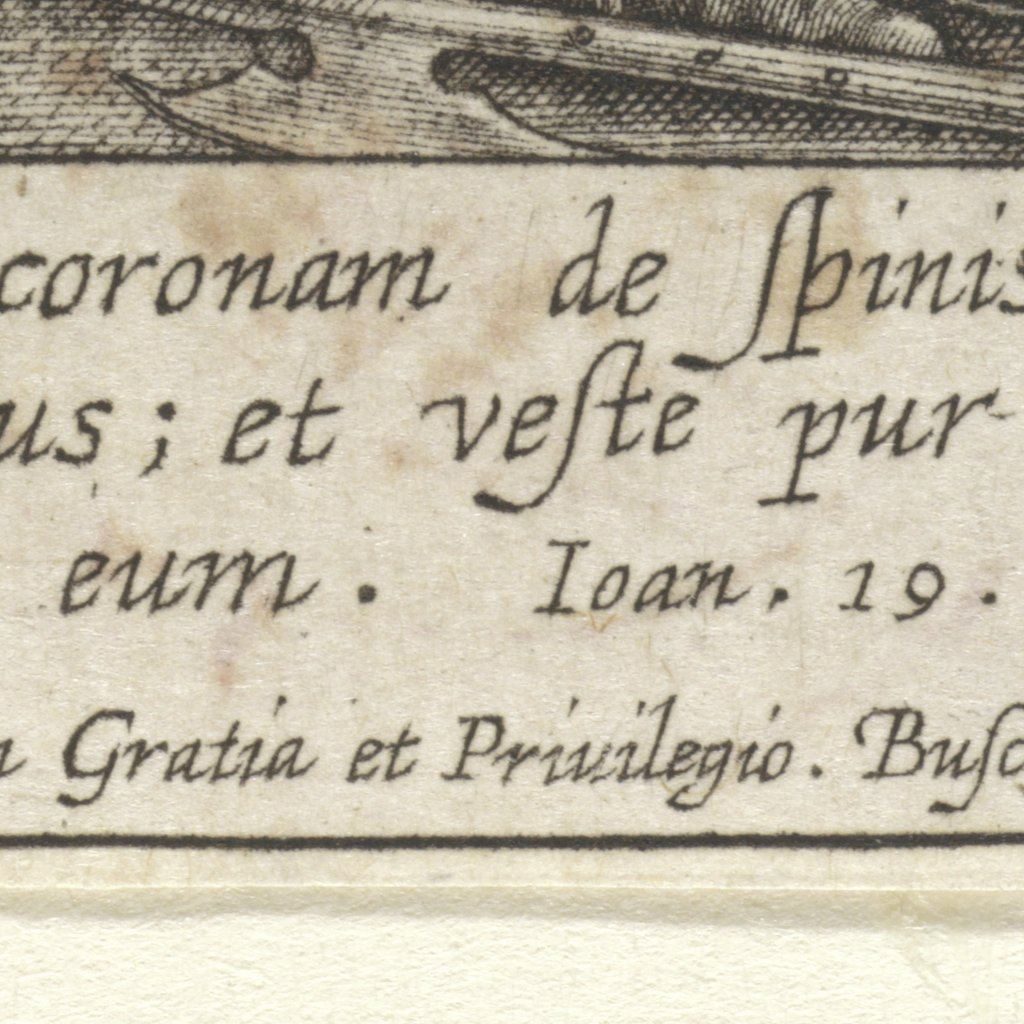 coronam de ſpinis
us ; et veſtē pur-
eum . Ioan . 19 .
Gratia et Privilegio . Buſc